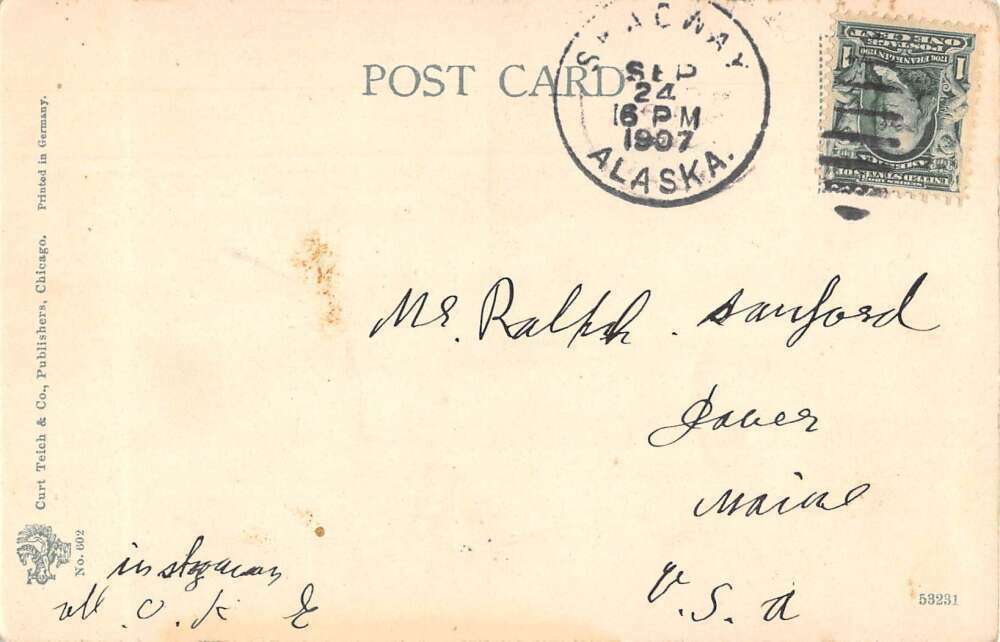 POST CARD
SKAGWAY
SEP
24
6 PM
1907
ALASKA.
POSTAGE
ONE CENT
1 1706 FRANKLIN 1790 1
SERIES 1902
UNITED STATES OF
AMERICA
Mr. Ralph Sanford
Dover
Maine
U.S.A
in
all O.K. E
Curt Teich & Co., Publishers, Chicago. Printed in Germany.
No. 602
53231